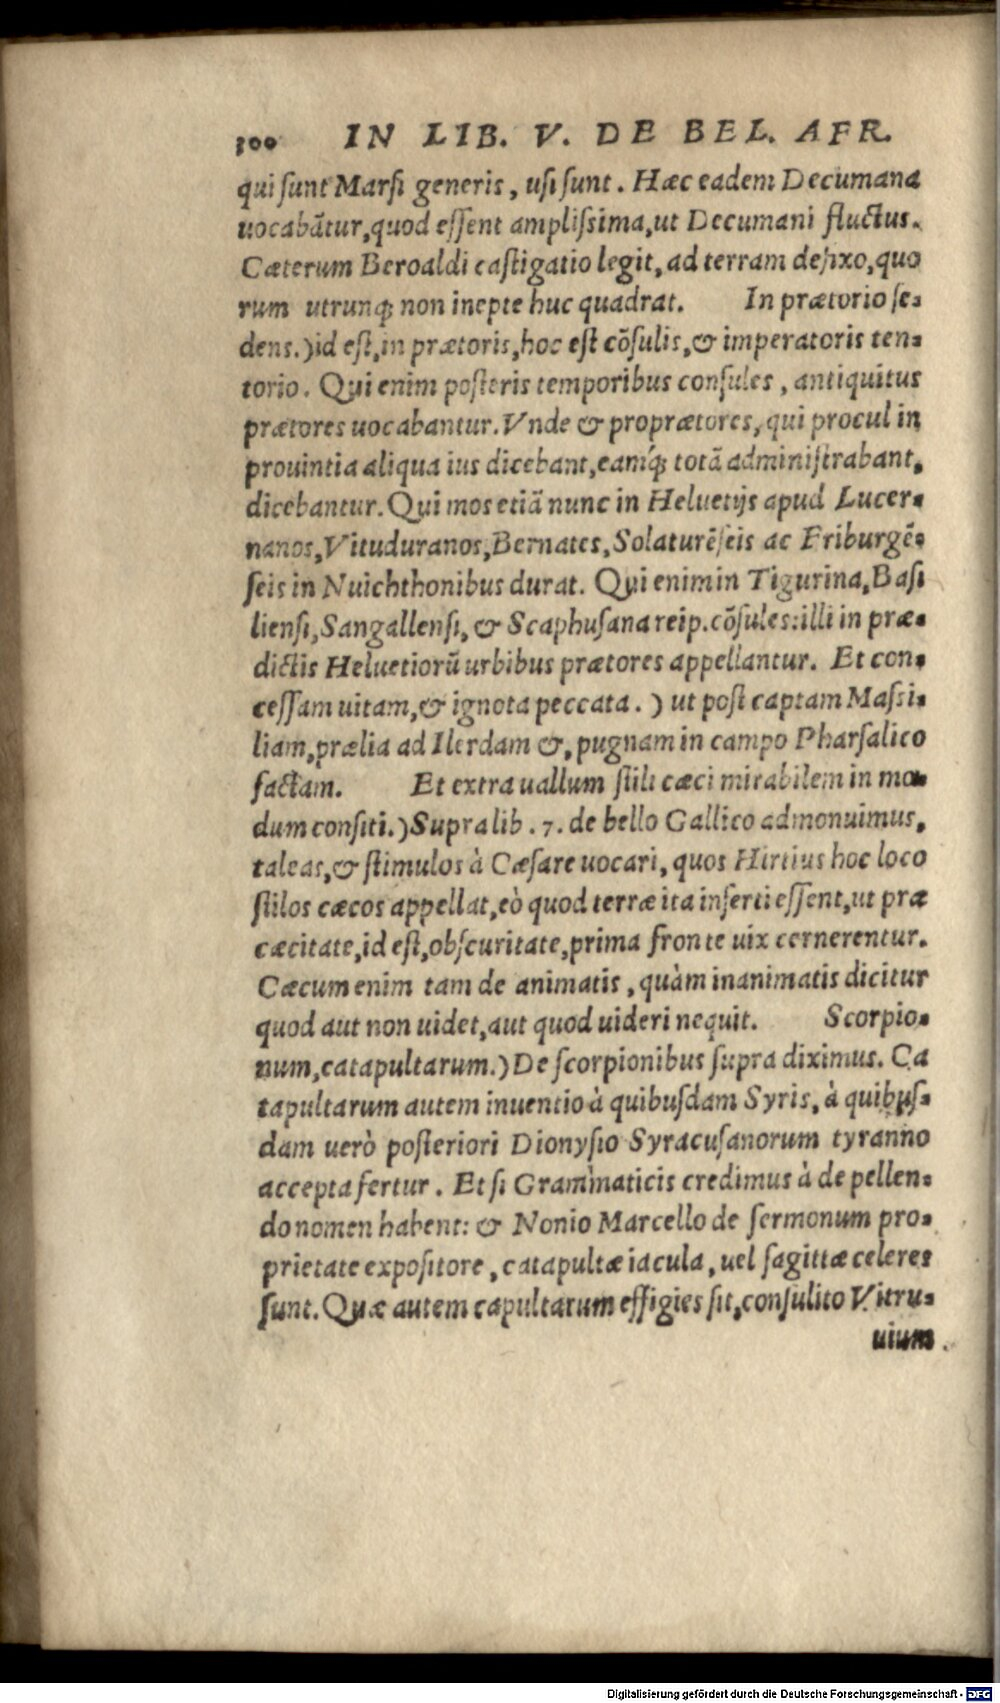 300 IN LIB. V. DE BEL. AFR.
qui sunt Marsi generis, usi sunt. Hæc eadem Decumana
uocabãtur, quod essent amplissima, ut Decumani fluctus.
Cæterum Beroaldi castigatio legit, ad terram defixo, quo
rum utrunq; non inepte huc quadrat. In prætorio se-
dens.) id est, in prætoris, hoc est cõsulis, & imperatoris ten-
torio. Qui enim posteris temporibus consules, antiquitus
prætores uocabantur. Vnde & proprætores, qui procul in
prouintia aliqua ius dicebant, eamq́; totã administrabant,
dicebantur. Qui mos etiã nunc in Heluetijs apud Lucer-
nanos, Vituduranos, Bernates, Solaturẽseis ac Friburgẽ-
seis in Nuichthonibus durat. Qui enim in Tigurina, Basi
liensi, Sangallensi, & Scaphusana reip. cõsules: illi in præ-
dictis Heluetiorũ urbibus prætores appellantur. Et con-
cessam uitam, & ignota peccata.) ut post captam Massi-
liam, prælia ad Ilerdam &, pugnam in campo Pharsalico
factam. Et extra uallum stili cæci mirabilem in mo-
dum consiti.) Supra lib. 7. de bello Gallico admonuimus,
taleas, & stimulos à Cæsare uocari, quos Hirtius hoc loco
stilos cæcos appellat, eò quod terræ ita inserti essent, ut præ
cæcitate, id est, obscuritate, prima fronte uix cernerentur.
Cæcum enim tam de animatis, quàm inanimatis dicitur
quod aut non uidet, aut quod uideri nequit. Scorpio-
num, catapultarum.) De scorpionibus supra diximus. Ca
tapultarum autem inuentio à quibusdam Syris, à quibus-
dam uerò posteriori Dionysio Syracusanorum tyranno
accepta fertur. Et si Grammaticis credimus à de pellen-
do nomen habent: & Nonio Marcello de sermonum pro-
prietate expositore, catapultæ iacula, uel sagittæ celeres
sunt. Quæ autem capultarum effigies sit, consulito Vitru-
uium.
Digitalisierung gefördert durch die Deutsche Forschungsgemeinschaft - DFG